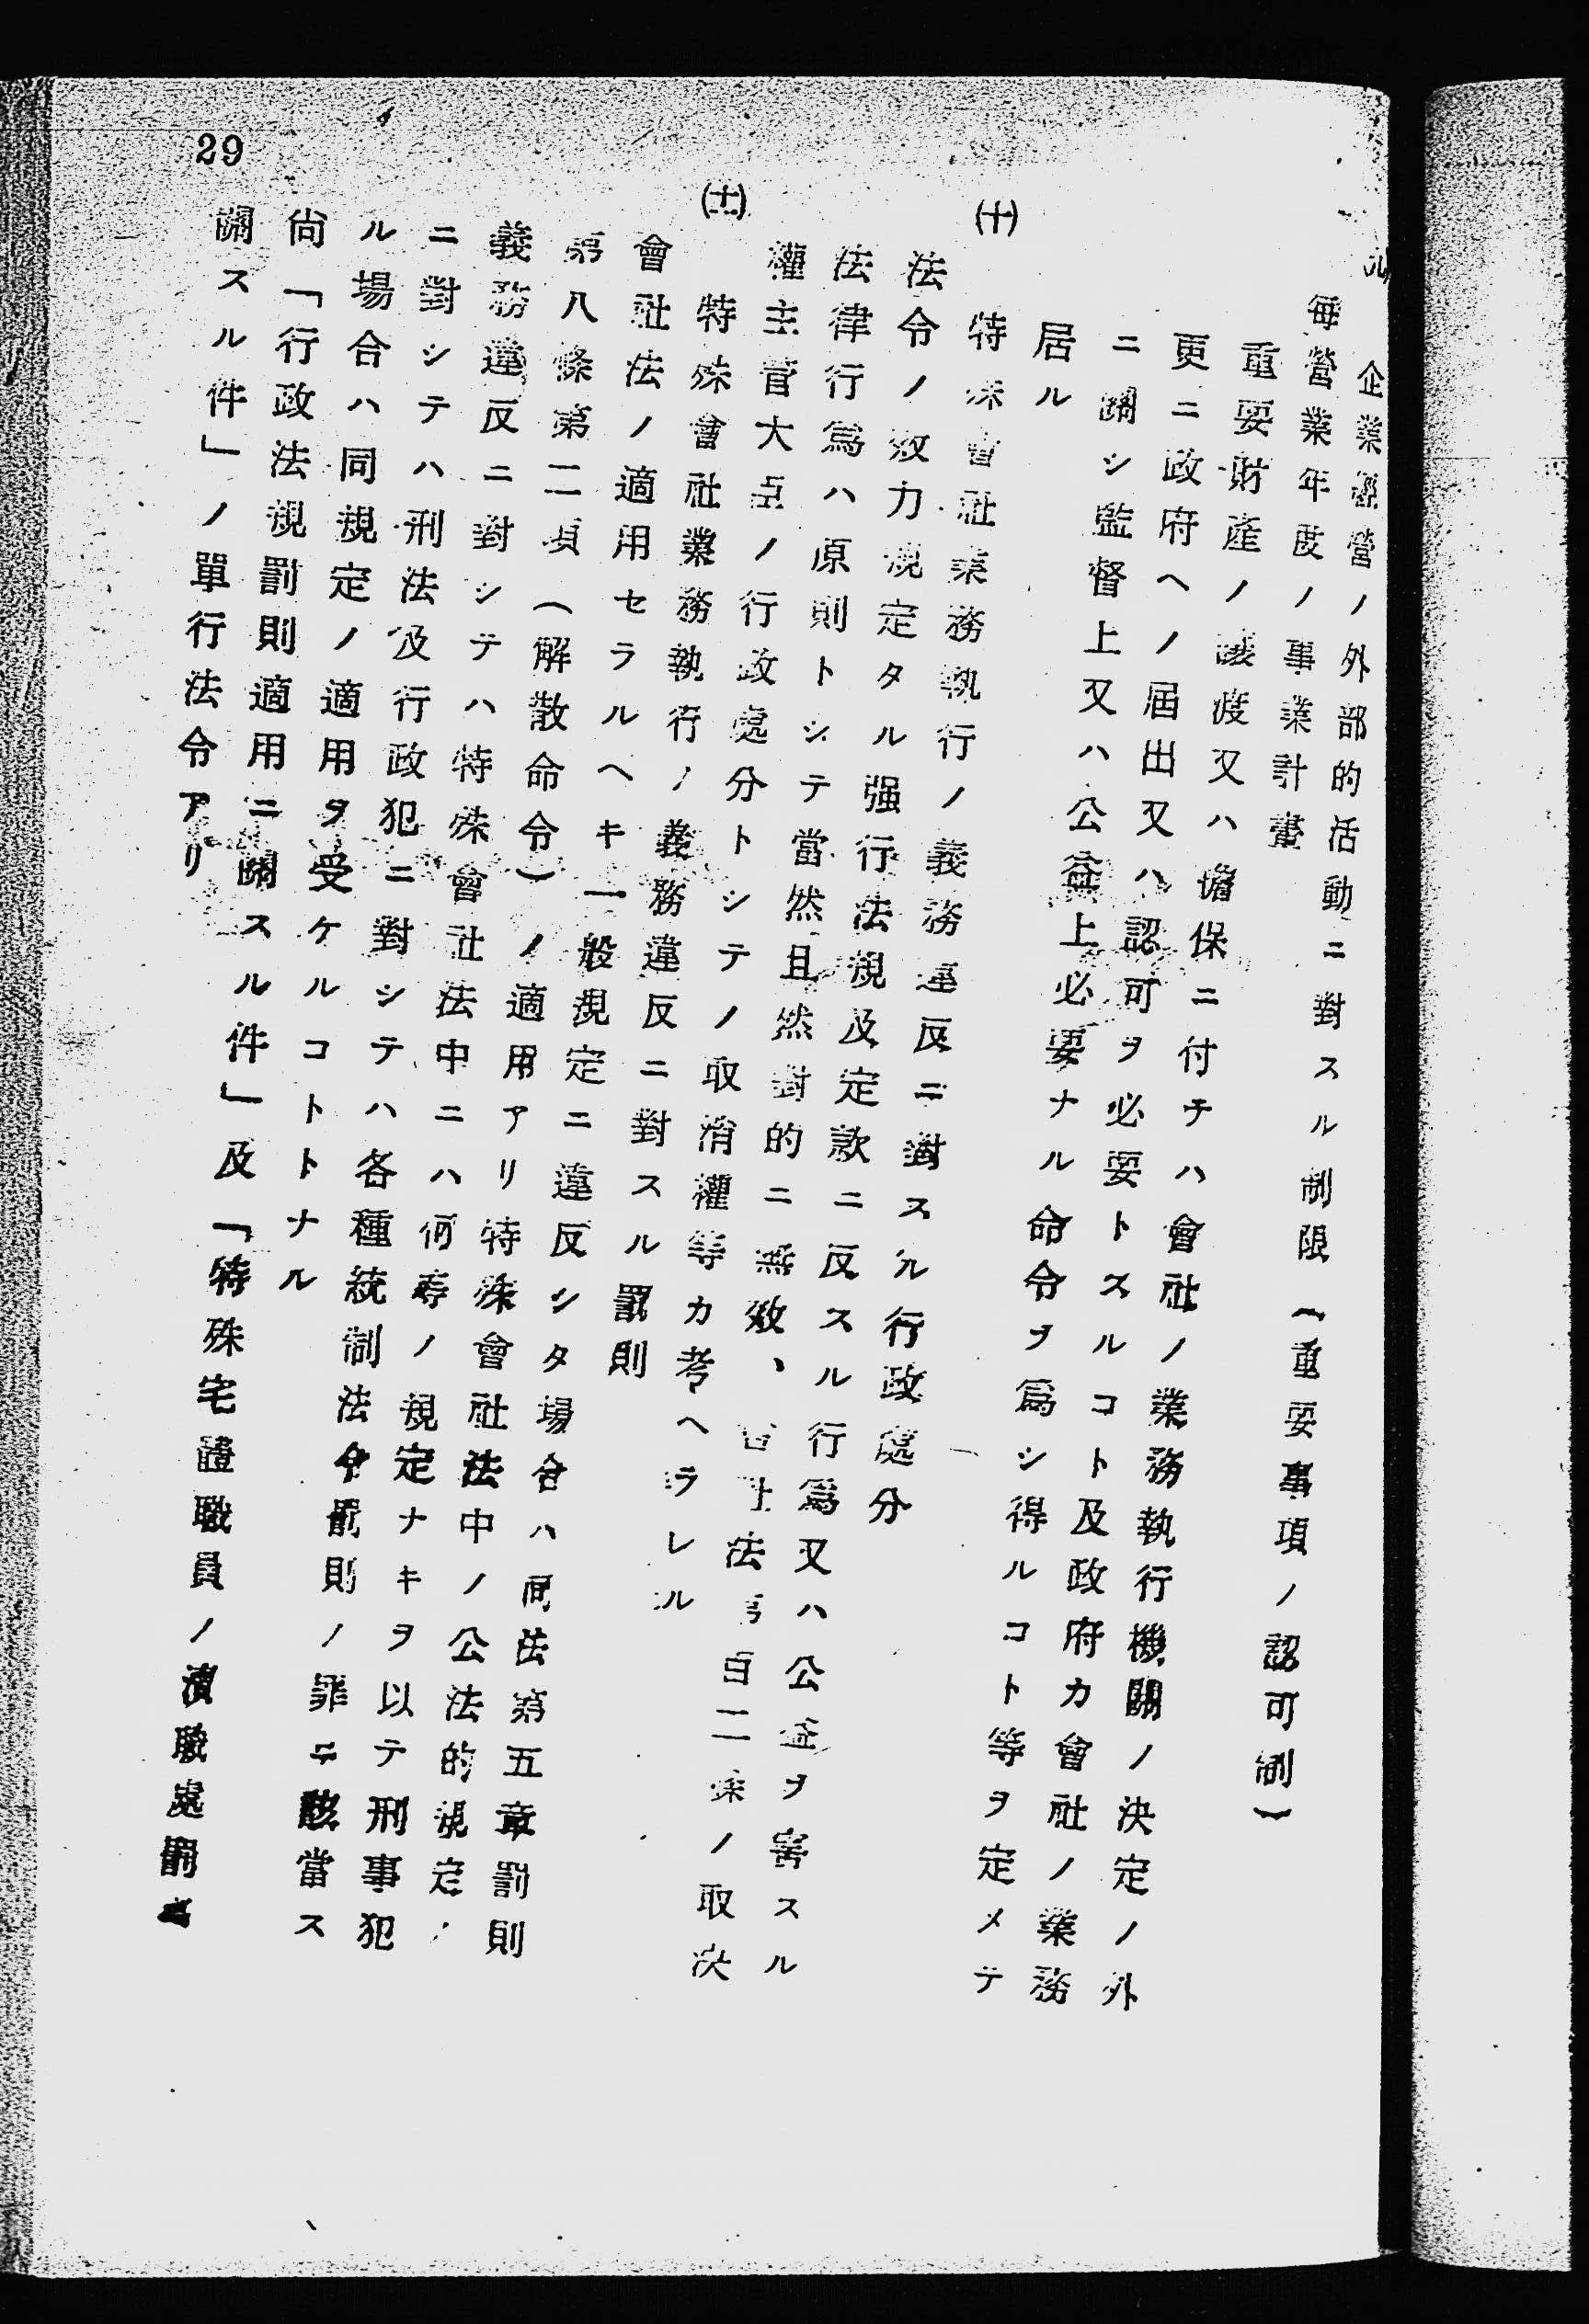 (九)
企業經營ノ外部的活動ニ對スル制限(重要事項ノ認可制)
每營業年度ノ事業計畫
重要財產ノ讓渡又ハ擔保ニ付テハ會社ノ業務執行機關ノ決定ノ外
更ニ政府ヘノ屆出又ハ認可ヲ必要トスルコト及政府カ會社ノ業務
ニ關シ監督上又ハ公益上必要ナル命令ヲ爲シ得ルコト等ヲ定メテ
居ル
(十)
特殊會社業務執行ノ義務違反ニ對スル行政處分
法令ノ效力規定タル强行法規及定款ニ反スル行爲又ハ公益ヲ害スル
法律行爲ハ原則トシテ當然且然對的ニ無效、會社法第百二條ノ取決
權主管大臣ノ行政處分トシテノ取消權等カ考ヘラレル
(十一)
特殊會社業務執行ノ義務違反ニ對スル罰則
會社法ノ適用セラルヘキ一般規定ニ違反シタ場合ハ同法第五章罰則
第八條第二項(解散命令)ノ適用アリ特殊會社法中ノ公法的規定ノ
義務違反ニ對シテハ特殊會社法中ニハ何等ノ規定ナキヲ以テ刑事犯
ニ對シテハ刑法及行政犯ニ對シテハ各種統制法令罰則ノ罪ニ該當ス
ル場合ハ同規定ノ適用ヲ受ケルコトトナル
尙「行政法規罰則適用ニ關スル件」及「特殊宅證職員ノ瀆職處罰ニ
關スル件」ノ單行法令アリ
29